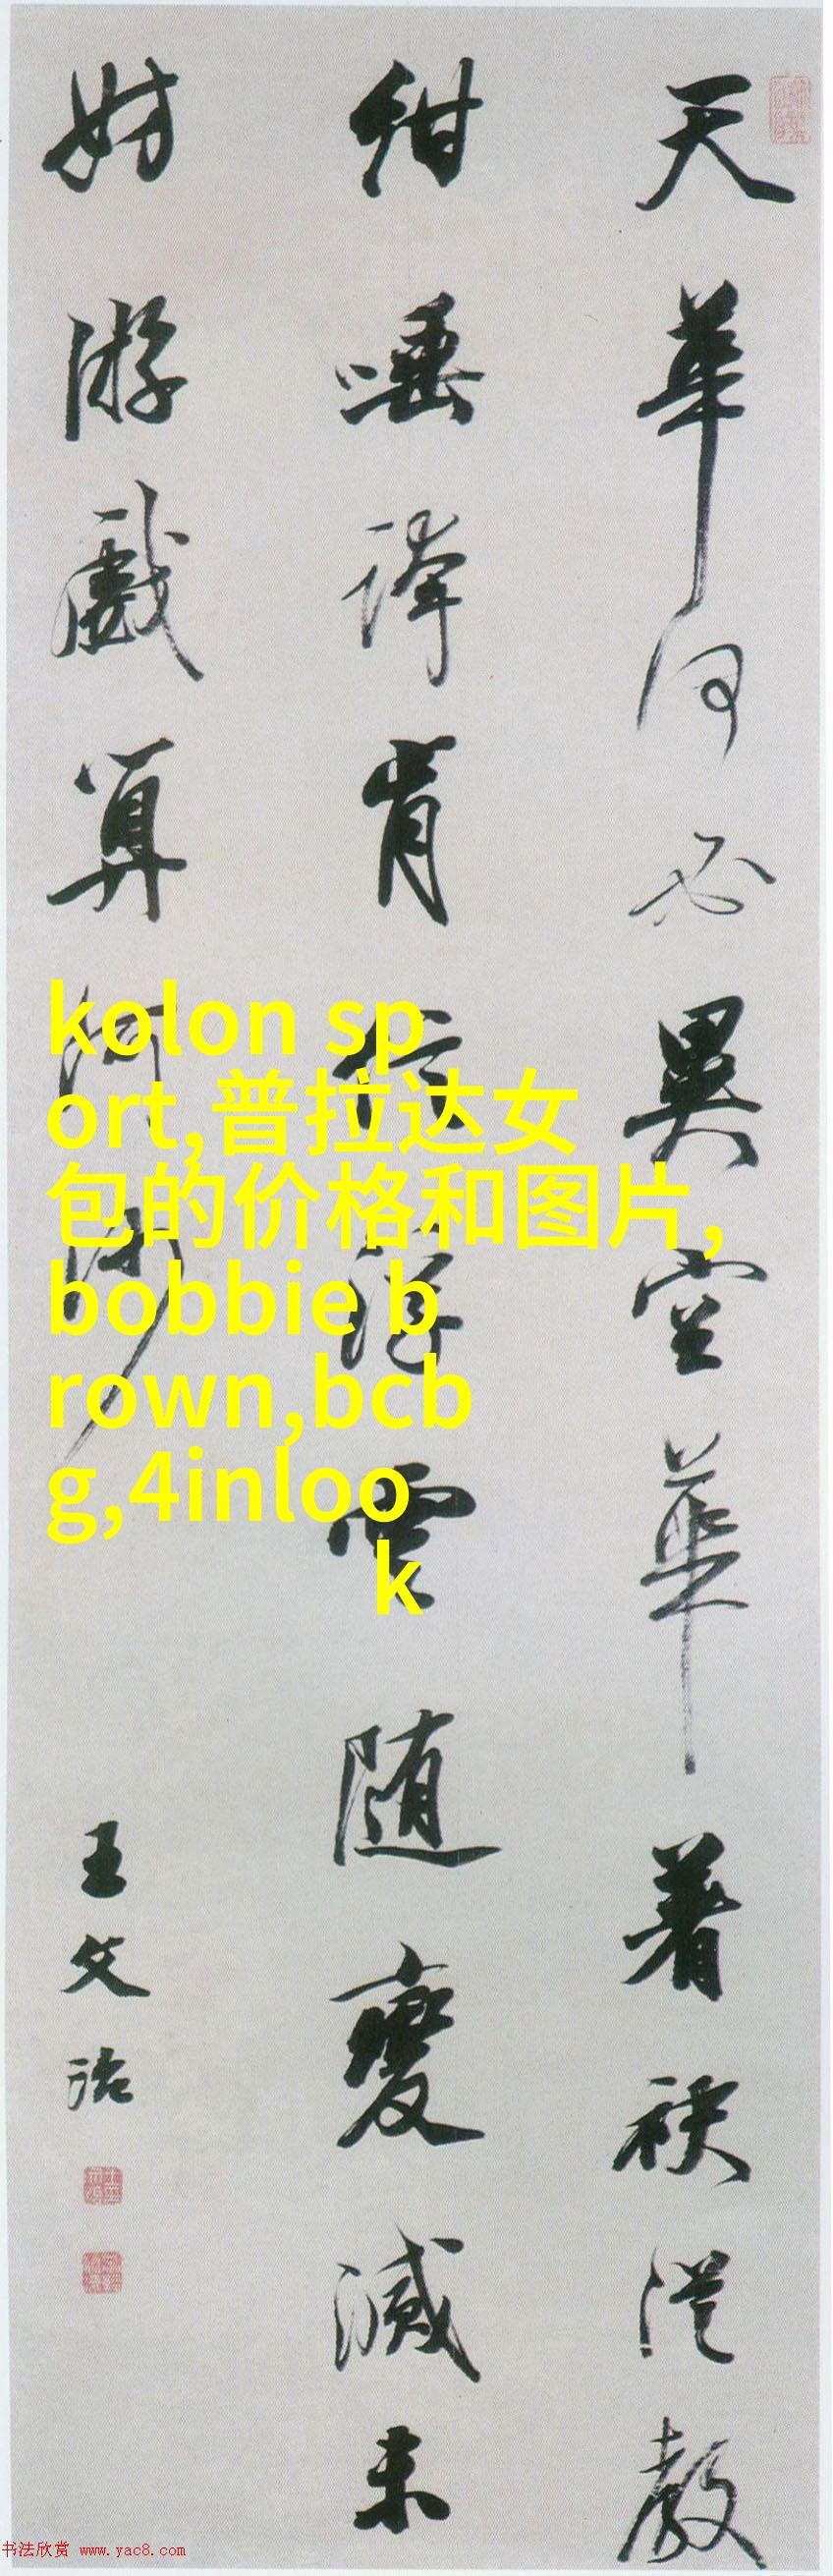 天華何必異空華着袂從教
紺唾譁肯信浮雲随變滅未
妨游戲算河沙
王文治
kolon sp
ort,普拉达女
包的价格和图片,
bobbie b
rown,bcb
g,4inloo
k
书法欣赏 www.yac8.com